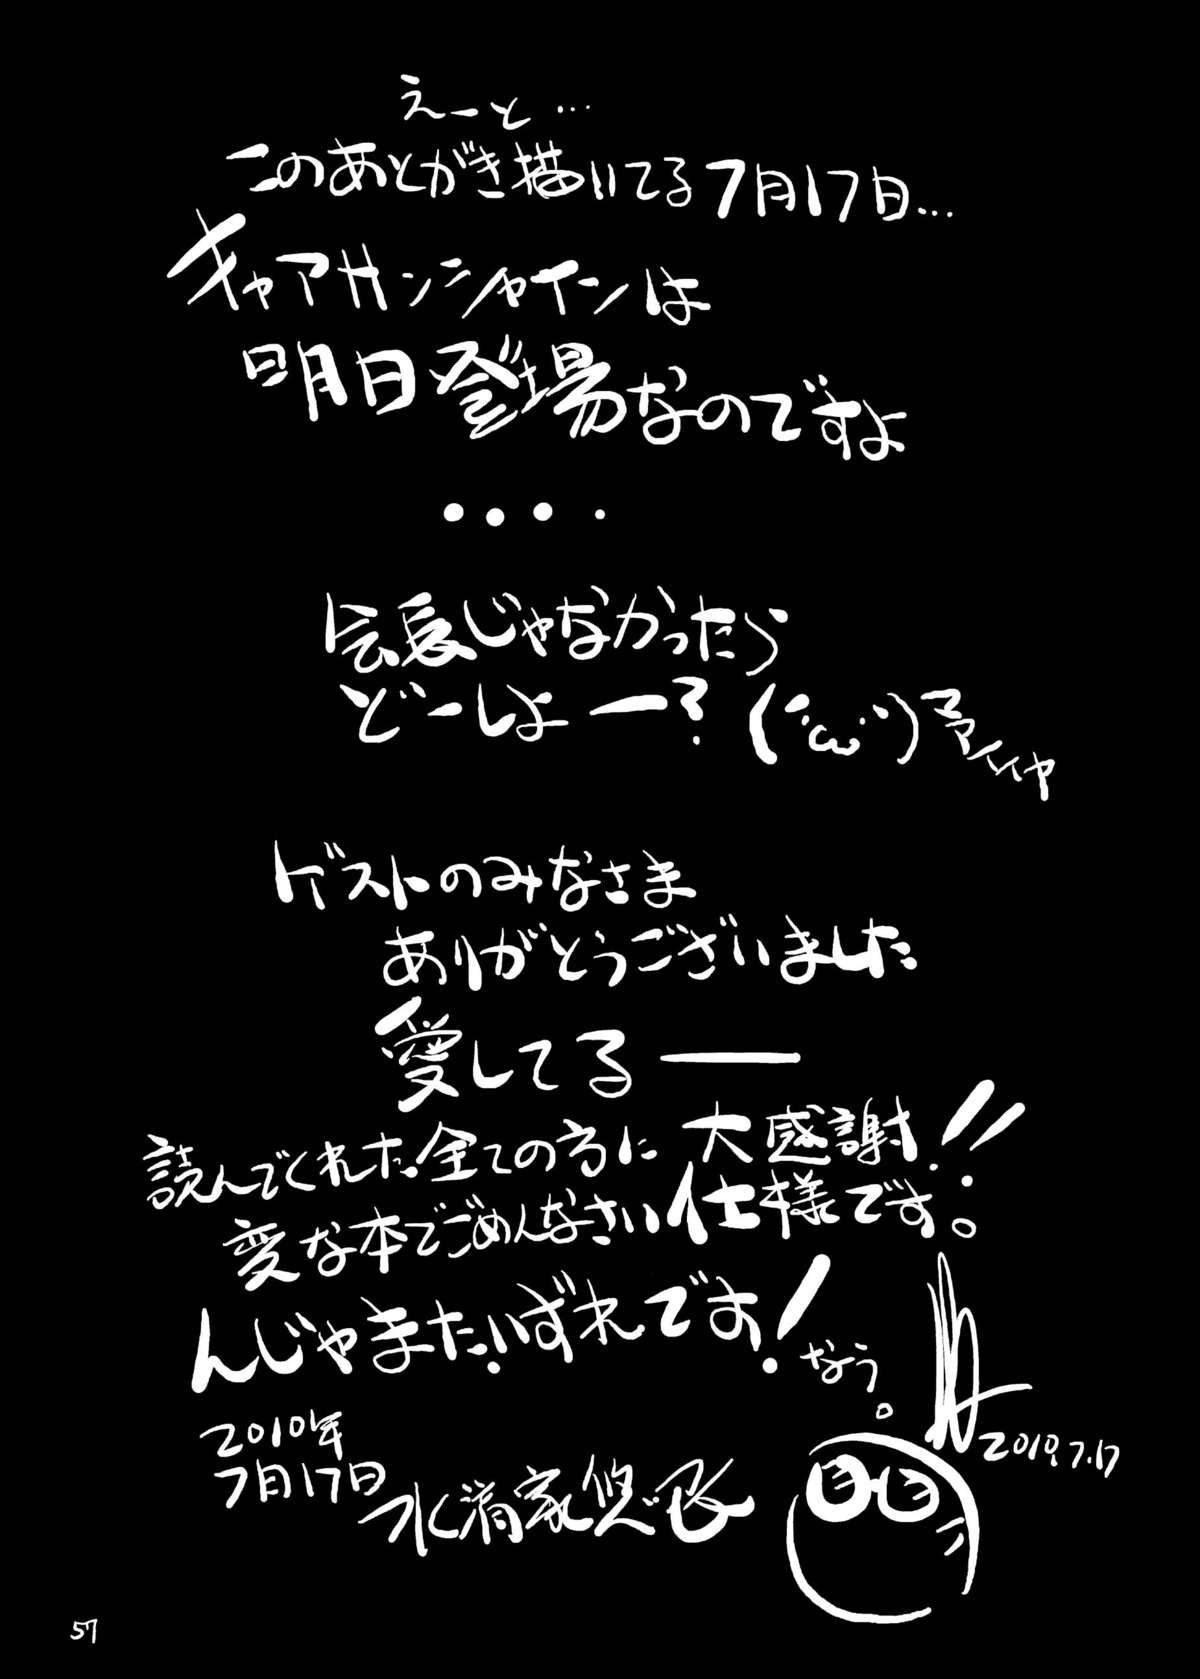 えーと…
このあとがき描いてる7月17日…
キャアサンシャインは
明日登場なのですよ
・・・・
会長じゃなかったら
どーしよー? (´・ω・`)
ゲストのみなさま
ありがとうございました
愛してるー
読んでくれた全ての方に大感謝!!
変な本でごめんなさい仕様です。
んじゃまたいずれです!なう。
2010年
7月17日
2010.7.17
57